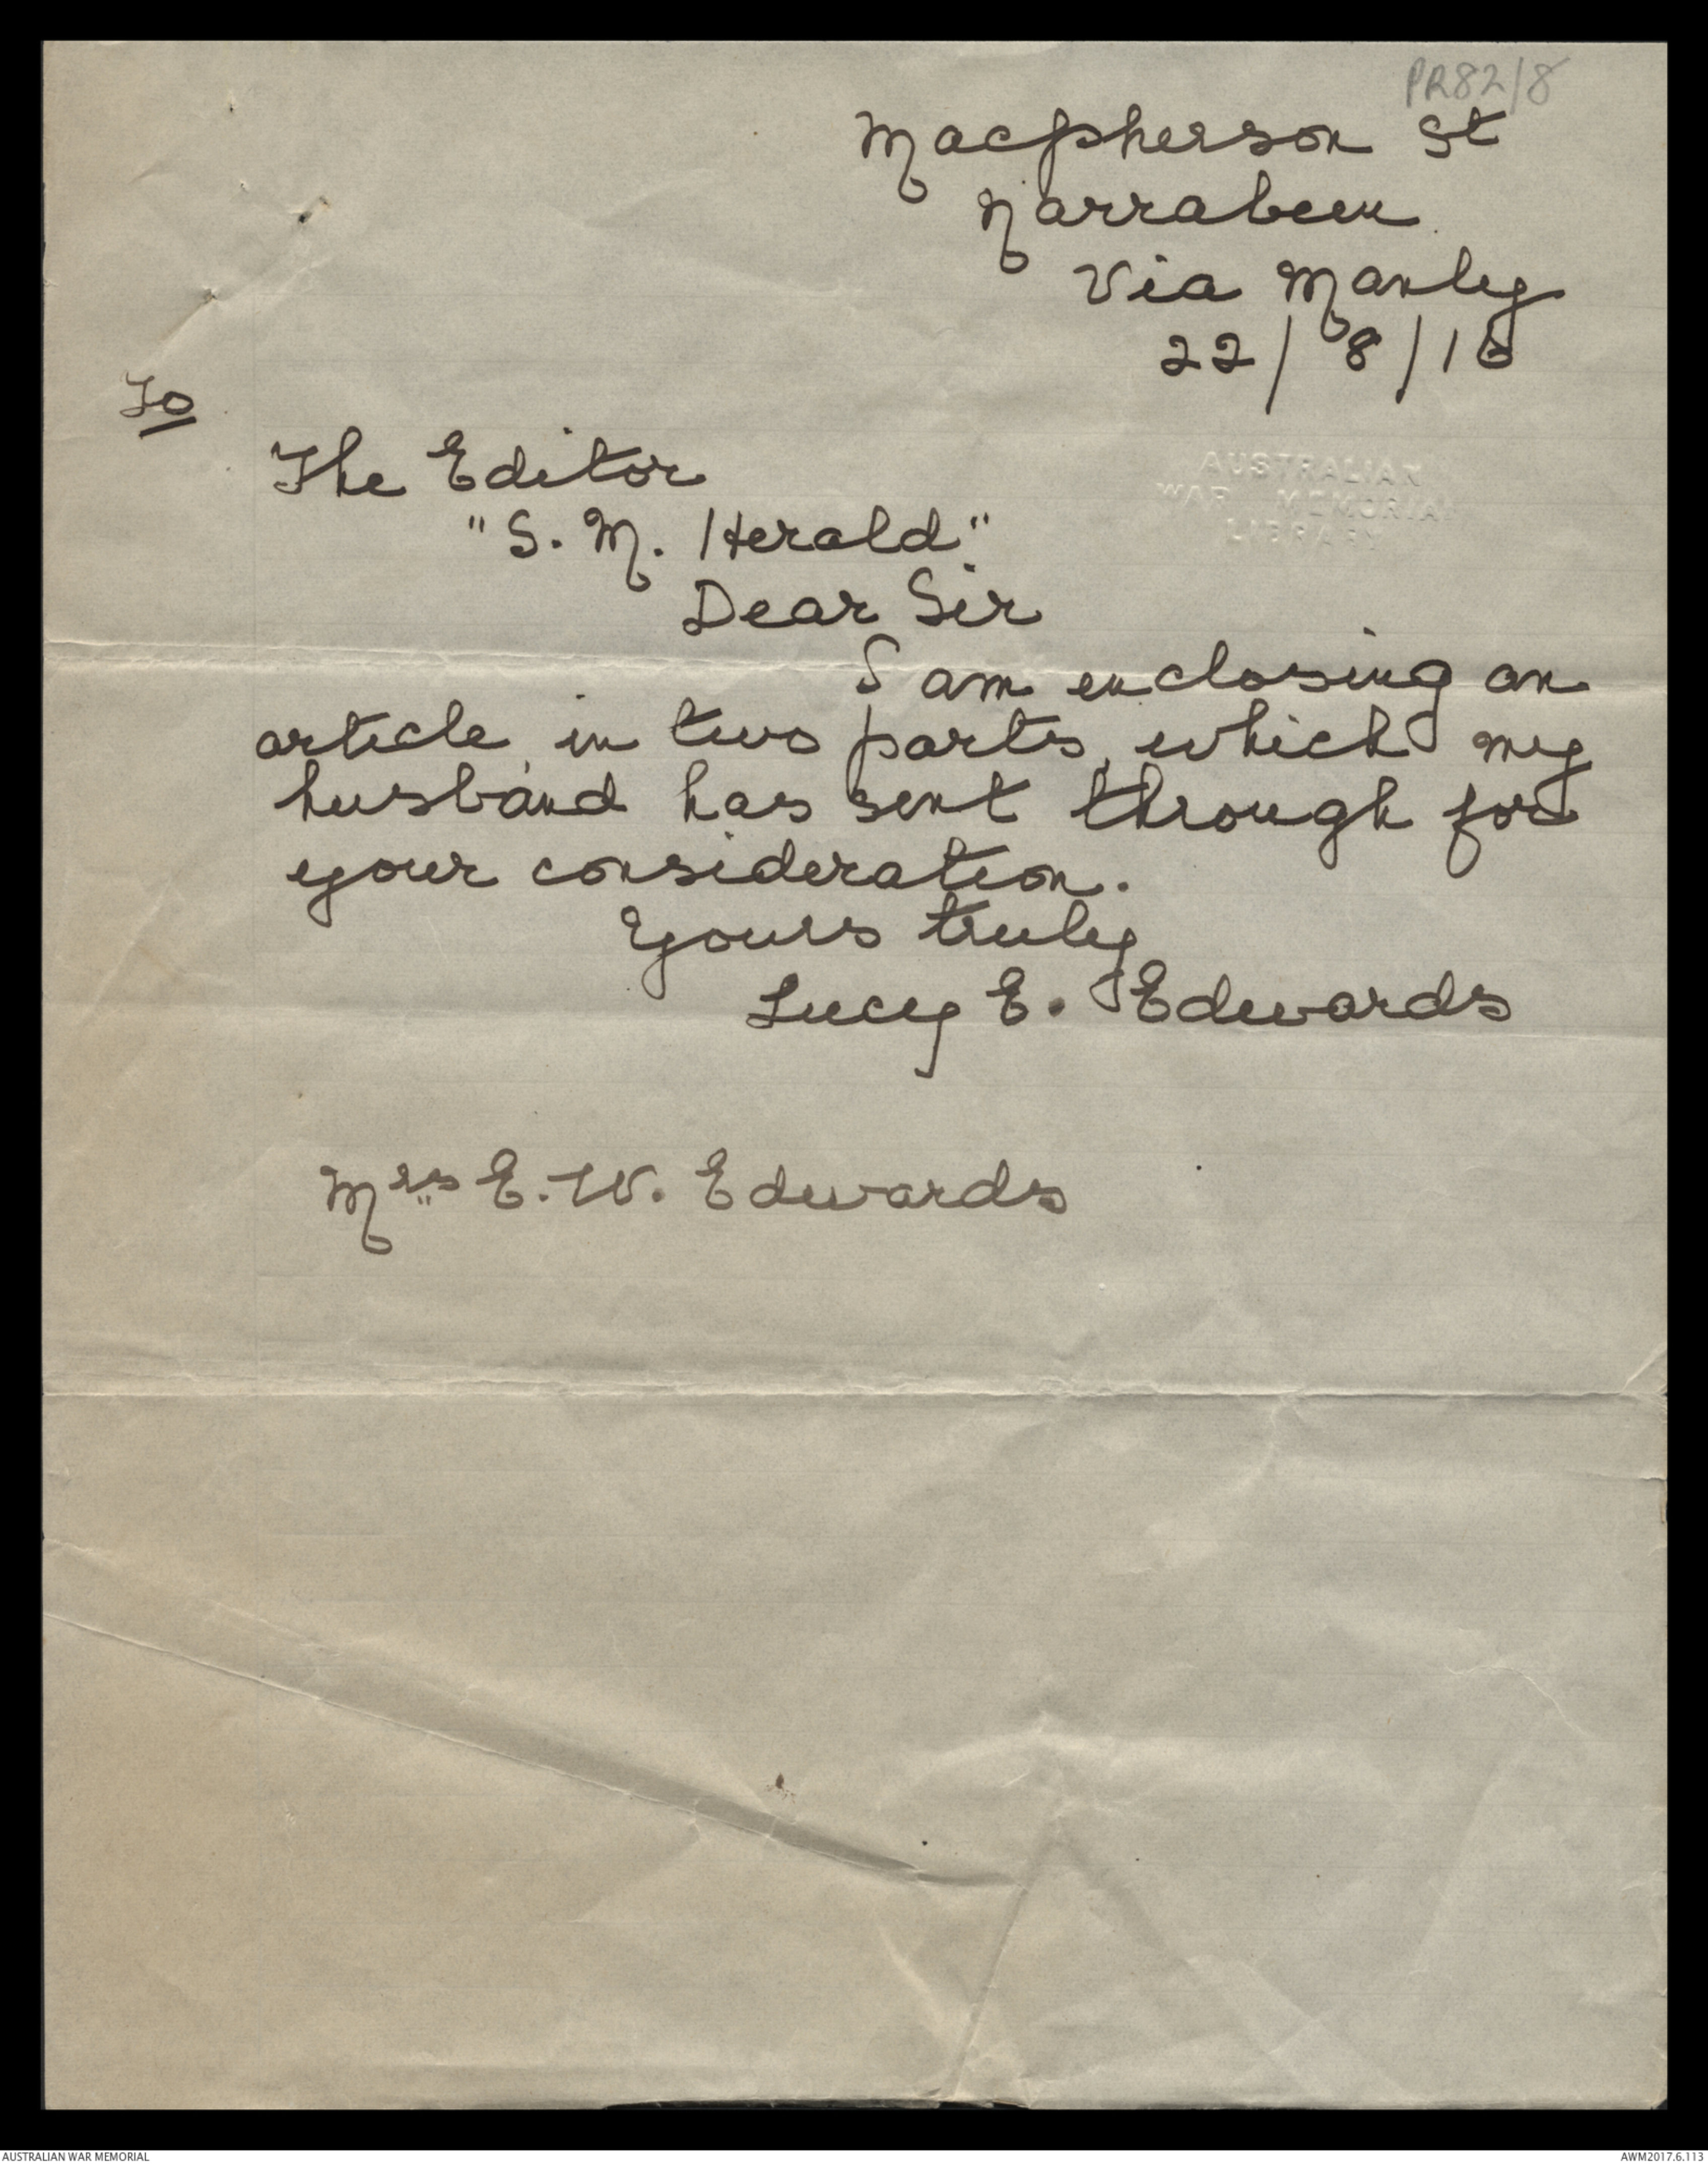 PR82/8
Macpherson St
Narrabeen
Via Manly
22/8/16
To
The Editor
"S. M. Herald"
AUSTRALIAN
WAR MEMORIAL
LIBRARY
Dear Sir
I am enclosing an
article, in two parts, which my
husband has sent through for
your consideration.
Yours truly
Lucy E. Edwards
Mrs E. W. Edwards
AUSTRALIAN WAR MEMORIAL
AWM2017.6.113